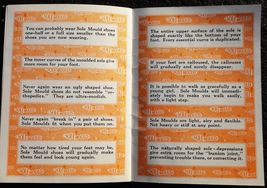 You can probably wear Sole Mould shoes
one-half or a full size smaller than the
shoes you are now wearing.
The inner curves of the moulded sole give
more room for your foot.
Never again wear an ugly shaped shoe.
Sole Mould shoes do not resemble "or-
thopedics." They are ultra-modish.
Never again "break in" a pair of shoes.
Sole Moulds fit when you put them on.
No matter how tired your feet may be,
Sole Mould shoes will gradually make
them feel and look young again.
The entire upper surface of the sole is
shaped exactly like the bottom of your
foot. Every essential curve is duplicated.
If your feet are calloused, the callouses
will gradually and surely disappear.
It is possible to walk as gracefully as a
young girl. Sole Moulds will immedi-
ately begin to make you walk easily,
with a light step.
Sole Moulds are light, airy and flexible.
Not heavy or stiff at any point.
The naturally shaped sole - depressions
give extra room for the "bunion joint,"
preventing trouble there, or correcting it.